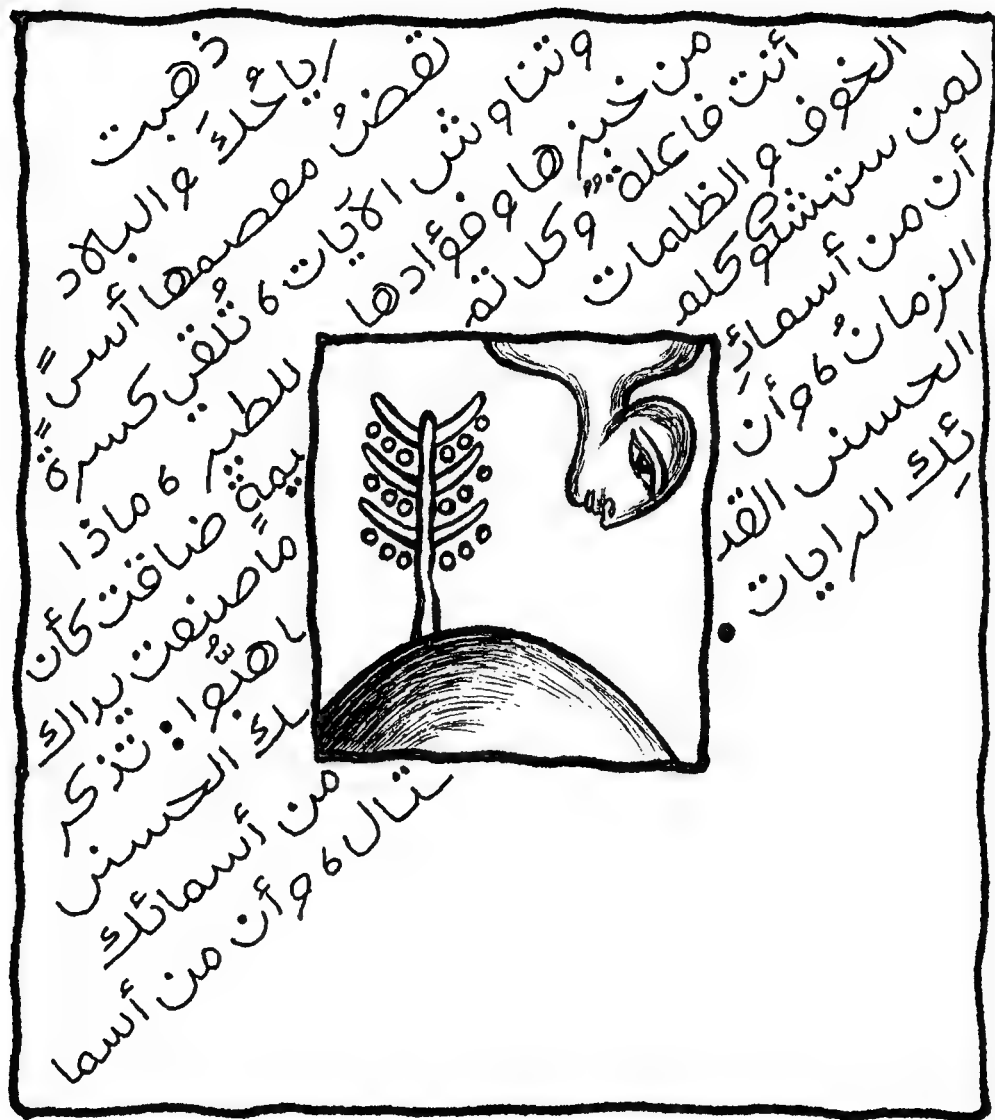 ذهبت
رياحُكَ والبلاد
تقضُ معصمها أسىً
وتناوش الآيات ، تُلقي كسرةً
من خبزها وفؤادها للطير ، ماذا
أنت فاعلةٌ وكل تميمةٍ ضاقت كأن
الخوف والظلمات مماً صنعت يداك
لمن ستهشكو كلما هنُّوا : تذكر
أن من أسمائِك الحسنى
الزمانُ ، وأن من أسمائك
الحسنى القتال ، وأن من أسما
ئِك الرايات .